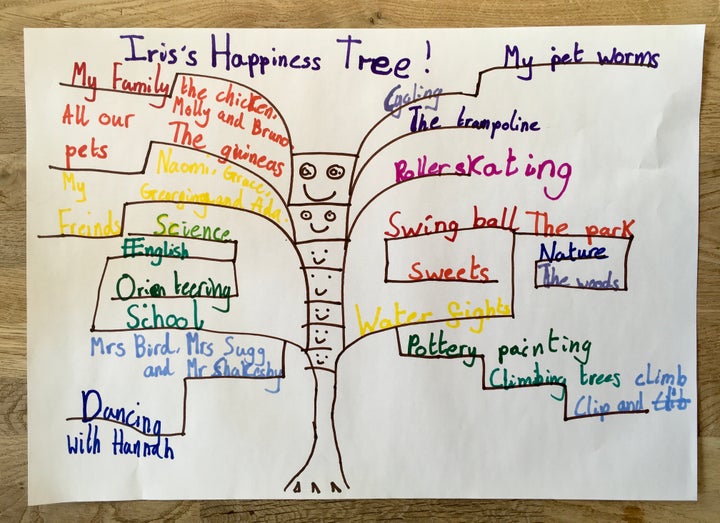 Iris's Happiness Tree!
My Family
the chicken.
Molly and Bruno
The guineas
All our
pets
My
Freinds
Naomi, Grace,
Georgina and Ada.
Science
English
Orienteering
School
Mrs Bird, Mrs Sugg
and Mr Shakesby
Dancing
with Hannah
My pet worms
Cycling
The trampoline
Rollerskating
Swing ball
The park
Nature
The woods
Sweets
Water fights
Pottery painting
Climbing trees
climb
Clip and